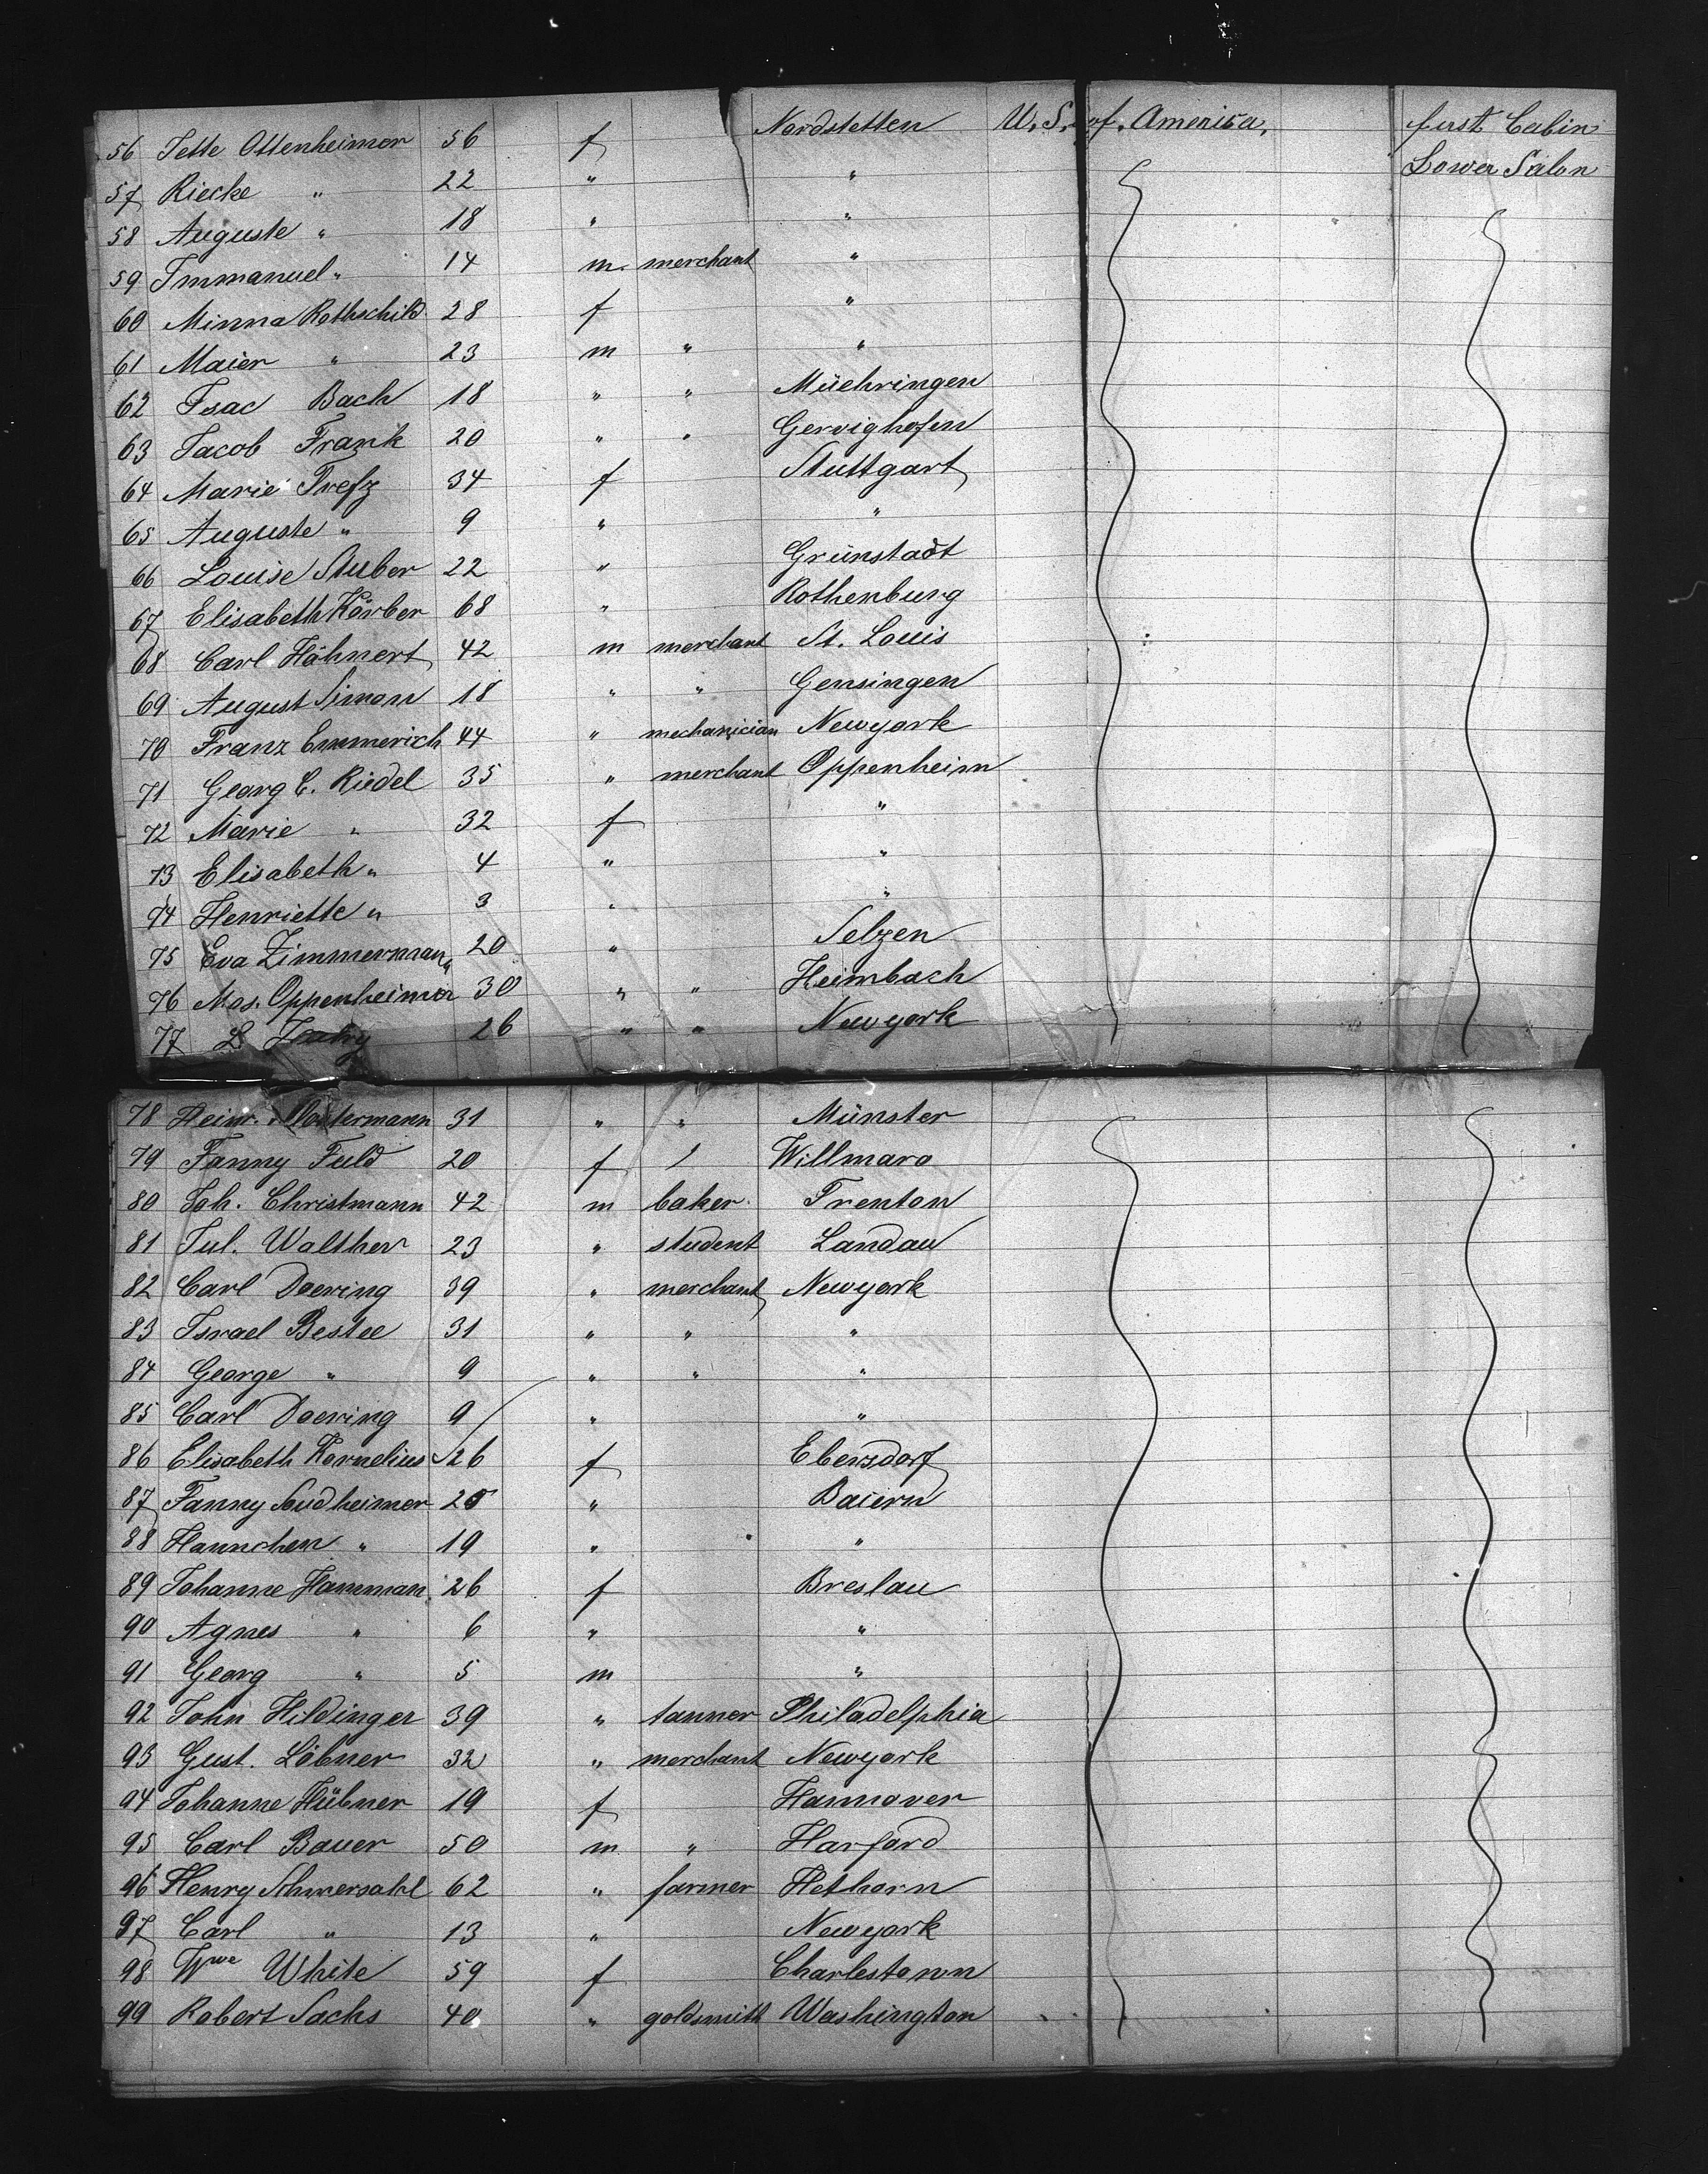 56 Jette Ottenheimer 56 f Nordstetten U. S. of. America, first Cabin
57 Riecke " 22 " " Lower Salon
58 Auguste " 18 " "
59 Immanuel " 14 m. merchant "
60 Minna Rothschild 28 f "
61 Maier " 23 m " "
62 Isac Bach 18 " " Müehringen
63 Jacob Frank 20 " " Gervighofen
64 Marie Trefz 34 f Stuttgart
65 Auguste " 9 " "
66 Louise Stuber 22 " Grünstadt
67 Elisabeth Körber 68 " Rothenburg
68 Carl Hähnert 42 m merchant St. Louis
69 August Simon 18 " " Gensingen
70 Franz Emmerich 44 " mechanician Newyork
71 Georg C. Riedel 35 " merchant Oppenheim
72 Marie " 32 f "
73 Elisabeth " 4 " "
74 Henriette " 3 " "
75 Eva Zimmermann 20 " Selzen
76 Mos. Oppenheimer 30 " " Heimbach
77 L 26 " " Newyork
78 Heinr. 31 " " Münster
79 Fanny Fuld 20 f Willmaro
80 Joh. Christmann 42 m baker. Trenton
81 Jul. Walther 23 " student Landau
82 Carl Doering 39 " merchant Newyork
83 Israel Bestee 31 " " "
84 George " 9 " " "
85 Carl Doering 9 " "
86 Elisabeth Kornelius 26 f Ebersdorf
87 Fanny Sudheimer 25 " Baiern
88 Hannchen " 19 " "
89 Johanne Hamman. 26 f Breslau
90 Agnes " 6 " "
91 Georg " 5 m "
92 John Hildinger 39 " tanner Philadelphia
93 Gust. Löbner 32 " merchant Newyork
94 Johanne Hübner 19 f Hannover
95 Carl Bauer 50 m " Harford
96 Henry Schmersahl 62 " farmer Hethorn
97 Carl " 13 " Newyork
98 Wwe White 59 f Charlestown
99 Robert Sachs 40 " goldsmith Washington